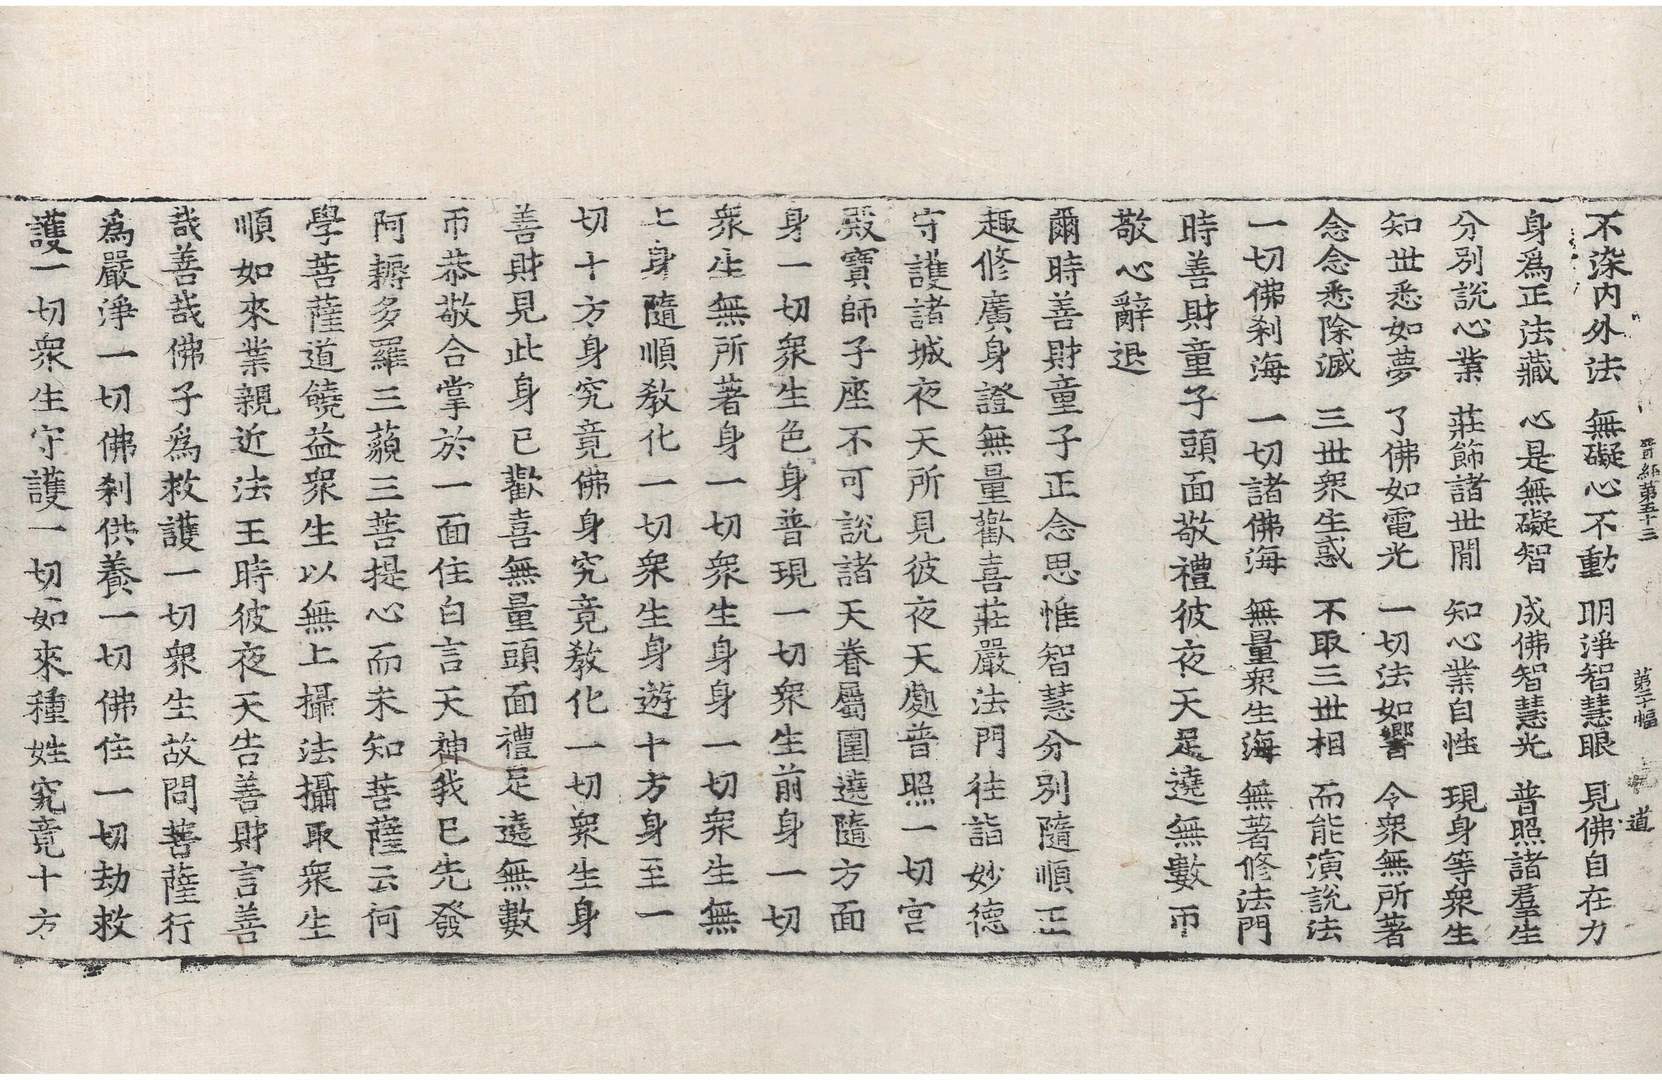 晉經第五十三　第二十幅　道
不染內外法　無礙心不動　明淨智慧眼　見佛自在力
身爲正法藏　心是無礙智　成佛智慧光　普照諸羣生
分別說心業　莊飾諸世間　知心業自性　現身等衆生
知世悉如夢　了佛如電光　一切法如響　令衆無所著
念念悉除滅　三世衆生惑　不取三世相　而能演說法
一切佛刹海　一切諸佛海　無量衆生海　無著修法門
時善財童子頭面敬禮彼夜天足遶無數帀
敬心辭退
爾時善財童子正念思惟智慧分別隨順正
趣修廣身證無量歡喜莊嚴法門往詣妙德
守護諸城夜天所見彼夜天處普照一切宮
殿寶師子座不可說諸天眷屬圍遶隨方面
身一切衆生色身普現一切衆生前身一切
衆生無所著身一切衆生身身一切衆生無
上身隨順教化一切衆生身遊十方身至一
切十方身究竟佛身究竟教化一切衆生身
善財見此身已歡喜無量頭面禮足遶無數
帀恭敬合掌於一面住白言天神我已先發
阿耨多羅三藐三菩提心而未知菩薩云何
學菩薩道饒益衆生以無上攝法攝取衆生
順如來業親近法王時彼夜天告善財言善
哉善哉佛子爲救護一切衆生故問菩薩行
爲嚴淨一切佛刹供養一切佛住一切劫救
護一切衆生守護一切如來種姓究竟十方